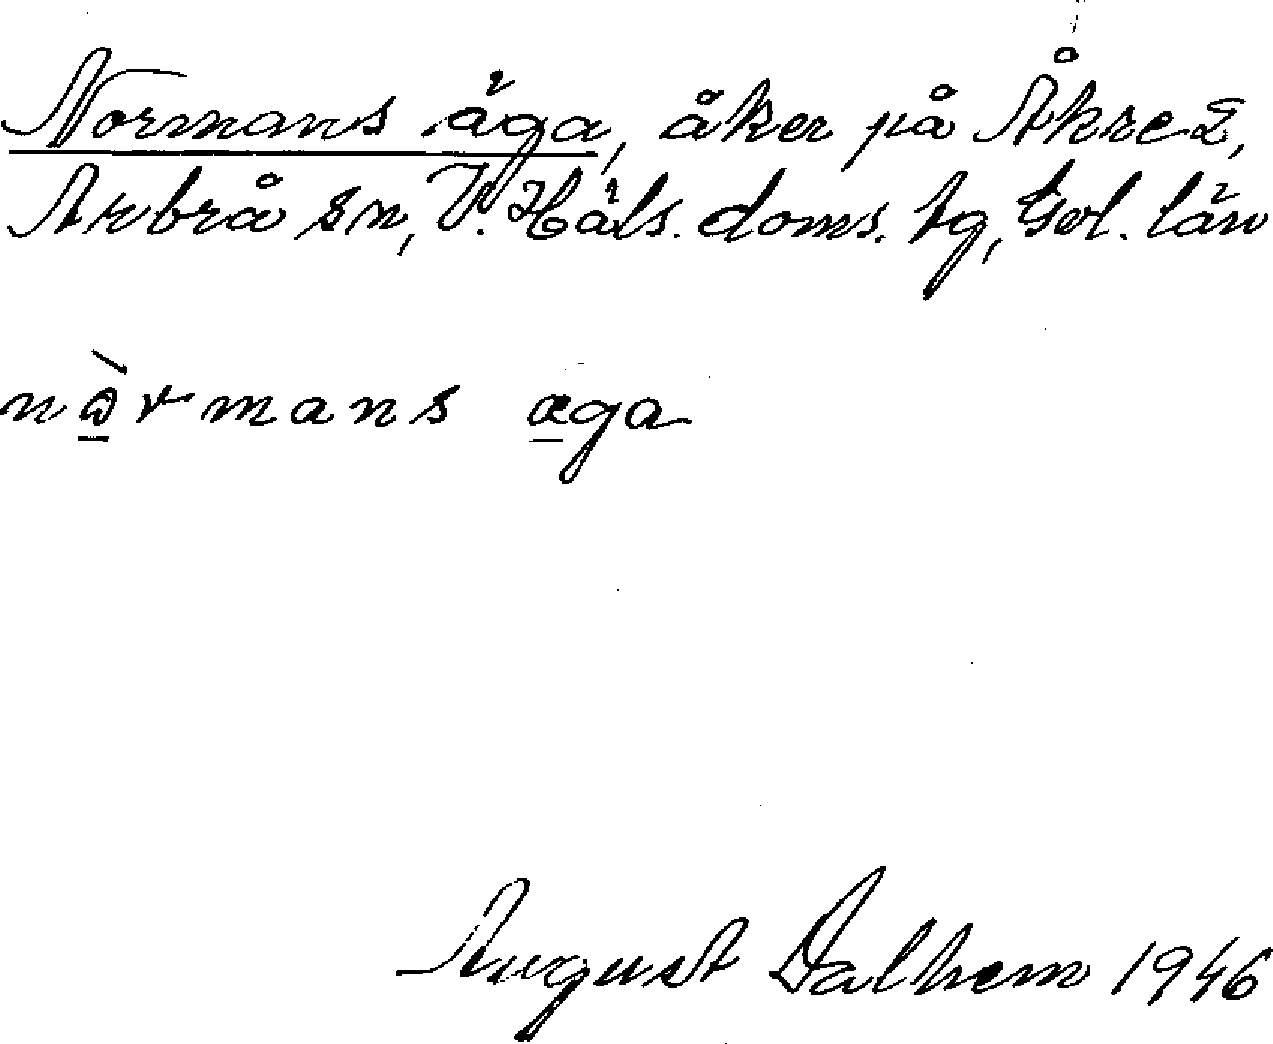 Normans äga, åker på Åkre 2,
Arbrå sn, V. Häls. doms. tg, Gvl. län
nə̀rmans æga
August Dalhem 1946